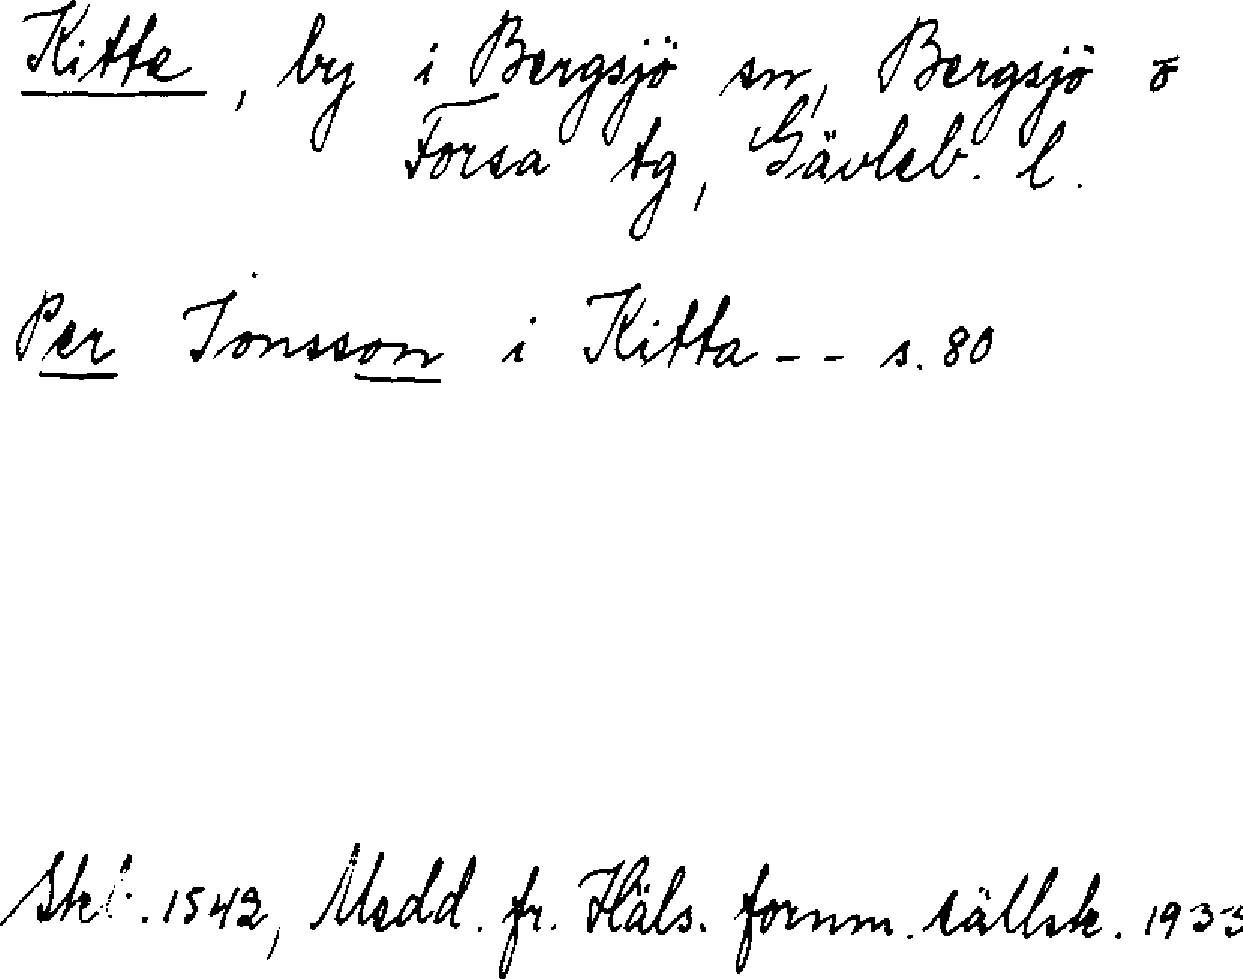 Kitte, by i Bergsjö sn, Bergsjö o
Forsa tg, Gävleb. l.
Per Jonsson i Kitta -- s. 80
1542, Medd. fr. Häls. fornm. sällsk. 1933